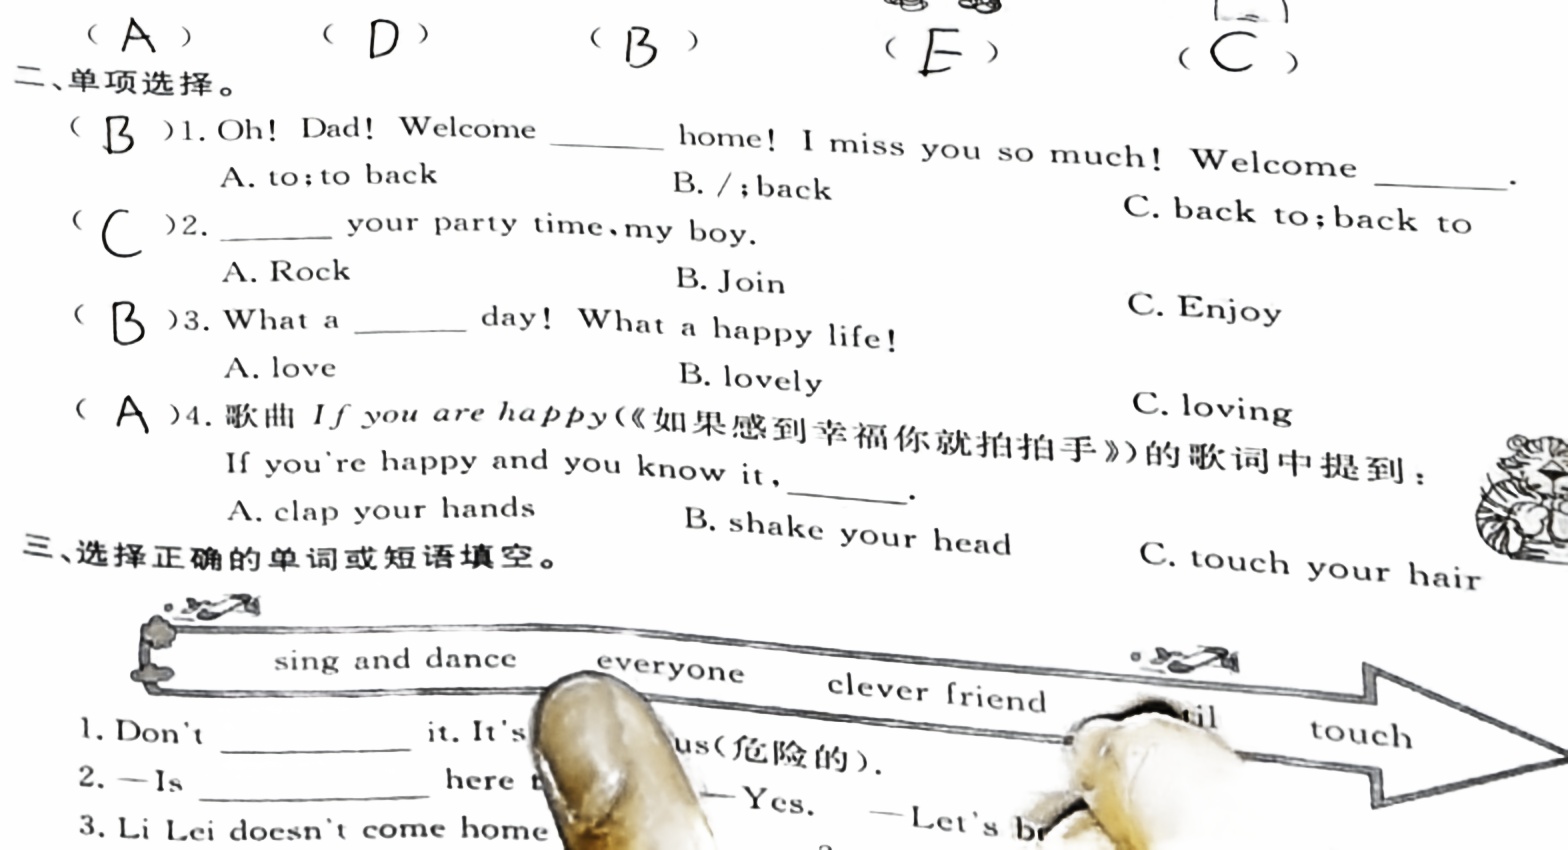 ( A ) ( D ) ( B ) ( E ) ( C )
二、单项选择。
( B )1. Oh! Dad! Welcome ______ home! I miss you so much! Welcome ______.
A. to;to back B. /;back C. back to;back to
( C )2. ______ your party time,my boy.
A. Rock B. Join C. Enjoy
( B )3. What a ______ day! What a happy life!
A. love B. lovely C. loving
( A )4. 歌曲 If you are happy(《如果感到幸福你就拍拍手》)的歌词中提到:
If you're happy and you know it, ______.
A. clap your hands B. shake your head C. touch your hair
三、选择正确的单词或短语填空。
sing and dance everyone clever friend touch
1. Don't ______ it. It's (危险的).
2. —Is ______ here —Yes. —Let's
3. Li Lei doesn't come home